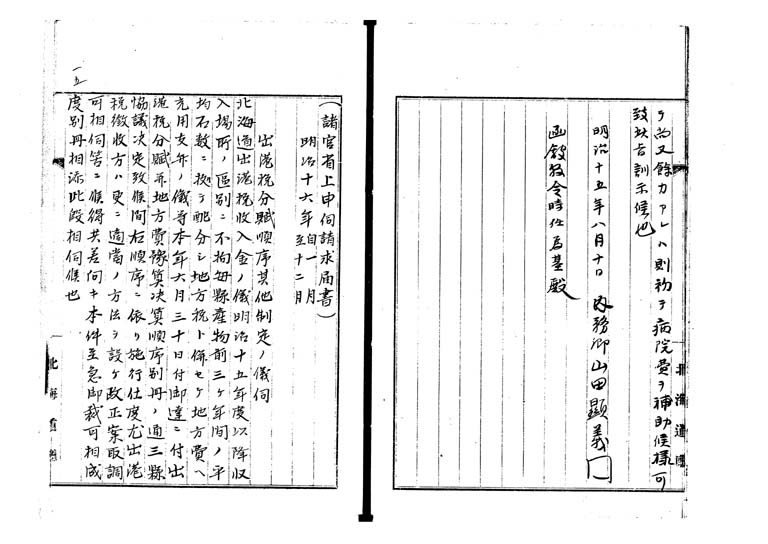 ヲ尚又餘力アレハ則初テ病院費ヲ補助候様可
致此旨訓示候也
明治十五年八月十日 内務卿山田顯義
函館縣令時任為基殿
北海道廳
一五
(諸官省上申伺請求届書)
明治十六年自一月至十二月
出港税分賦順序其他制定ノ儀伺
北海道出港税收入金ノ儀明治十五年度以降収
入場所ノ區別ニ不拘毎縣産物前三ケ年間ノ平
均石数ニ拠テ配分シ地方税ト併セケ地方費ヘ
充用支弁ノ儀等本年六月三十日付御達ニ付出
港税分賦并地方費豫算决算順序別冊ノ通三縣
協議决定致候間右順序ニ依リ施行仕度尤出港
税徴收方ハ更ニ適當ノ方法ヲ設ケ改正案取調
可相伺筈ニ候得共差向キ本件至急御裁可相成
度別冊相添此段相伺候也
北海道廳